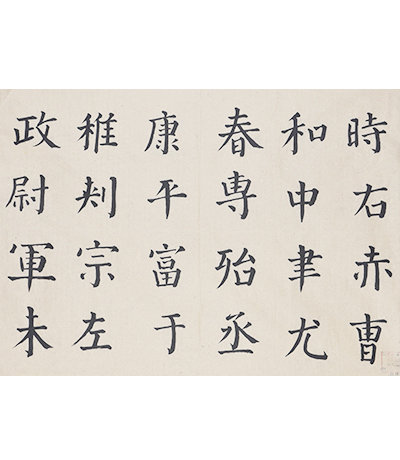 時右赤曺
和中聿尤
春専殆丞
康平富于
稚刾宗左
政尉軍未